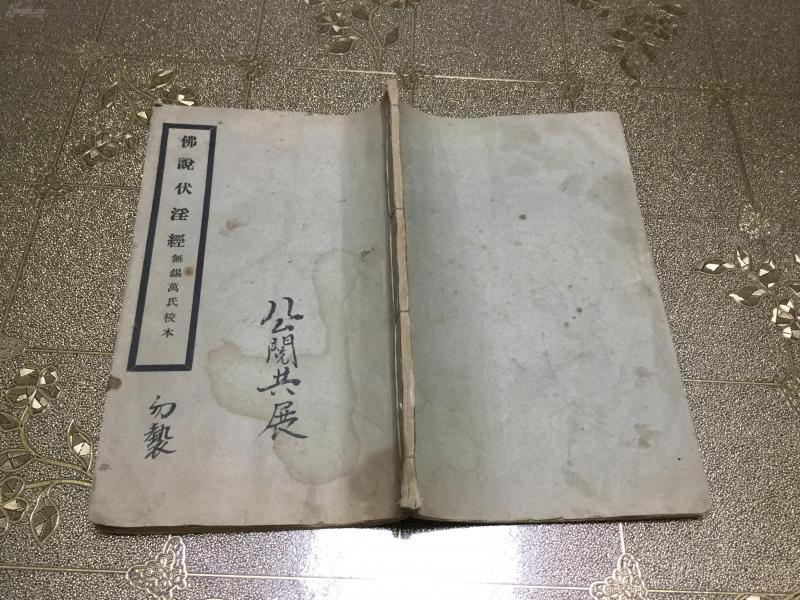 佛說伏淫經
無錫萬氏校本
公閱共展
勿褻